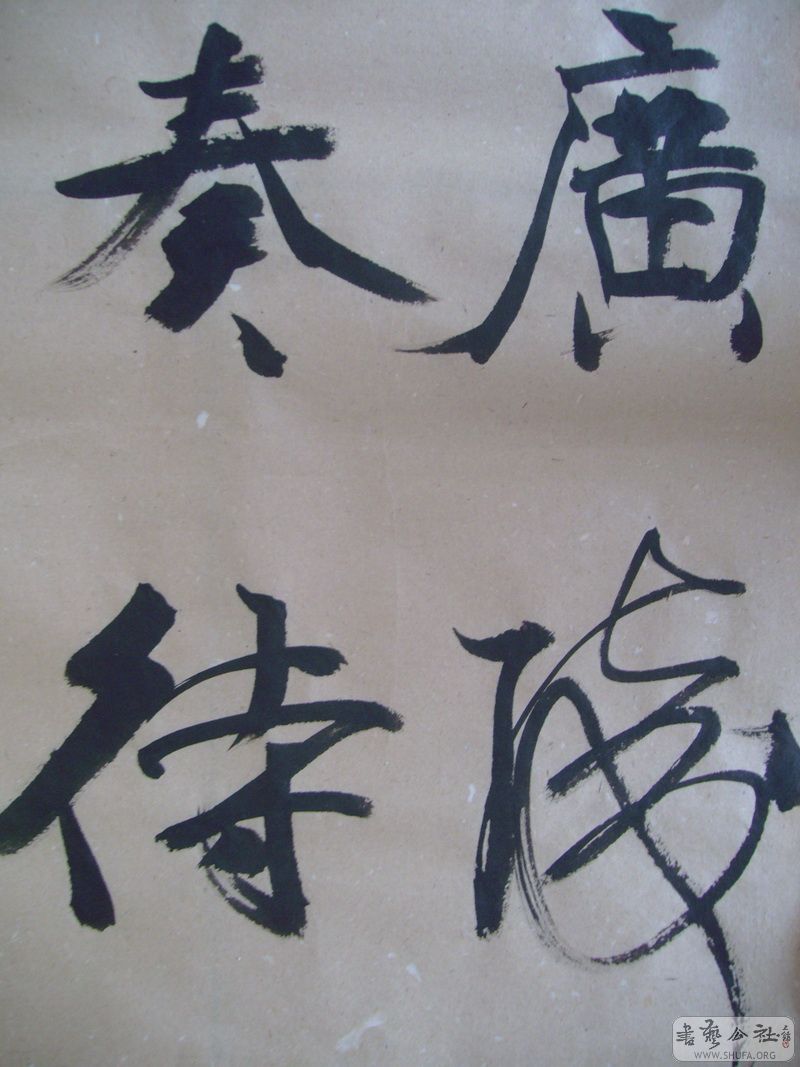 廣陵
奏待
書藝公社
WWW.SHUFA.ORG